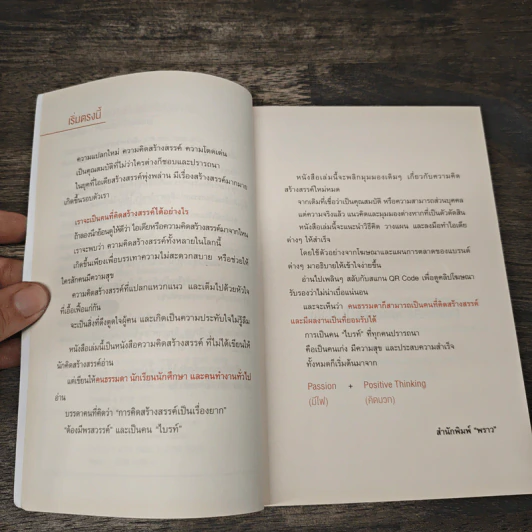 เริ่มตรงนี้
ความแปลกใหม่ ความคิดสร้างสรรค์ ความโดดเด่น
เป็นคุณสมบัติที่ไม่ว่าใครต่างก็ชอบและปรารถนา
ในยุคที่ไอเดียสร้างสรรค์พุ่งพล่าน มีเรื่องสร้างสรรค์มากมาย
เกิดขึ้นรอบตัวเรา
เราจะเป็นคนที่คิดสร้างสรรค์ได้อย่างไร
ถ้าลองนึกย้อนดูให้ดีว่า ไอเดียหรือความคิดสร้างสรรค์มาจากไหน
เราจะพบว่า ความคิดสร้างสรรค์ทั้งหลายในโลกนี้
เกิดขึ้นเพียงเพื่อบรรเทาความไม่สะดวกสบาย หรือช่วยให้
ใครสักคนมีความสุข
ความคิดสร้างสรรค์ที่แปลกแหวกแนว และเติมไปด้วยหัวใจ
ที่เอื้อเฟื้อแก่กัน
จะเป็นสิ่งที่ดึงดูดใจผู้คน และเกิดเป็นความประทับใจไม่รู้ลืม
หนังสือเล่มนี้เป็นหนังสือความคิดสร้างสรรค์ ที่ไม่ได้เขียนให้
นักคิดสร้างสรรค์อ่าน
แต่เขียนให้คนธรรมดา นักเรียนนักศึกษา และคนทำงานทั่วไป
อ่าน
บรรดาคนที่คิดว่า “การคิดสร้างสรรค์เป็นเรื่องยาก”
“ต้องมีพรสวรรค์” และเป็นคน “ไบรท์”
หนังสือเล่มนี้จะพลิกมุมมองเดิมๆ เกี่ยวกับความคิด
สร้างสรรค์ใหม่หมด
จากเดิมที่เชื่อว่าเป็นคุณสมบัติ หรือความสามารถส่วนบุคคล
แต่ความจริงแล้ว แนวคิดและมุมมองต่างหากที่เป็นตัวตัดสิน
หนังสือเล่มนี้จะแนะนำวิธีคิด วางแผน และลงมือทำไอเดีย
ต่างๆ ให้สำเร็จ
โดยใช้ตัวอย่างจากโฆษณาและแผนการตลาดของแบรนด์
ต่างๆ มาอธิบายให้เข้าใจง่ายขึ้น
อ่านไปเพลินๆ สลับกับสแกน QR Code เพื่อดูคลิปโฆษณา
รับรองว่าไม่น่าเบื่อแน่นอน
และจะเห็นว่า คนธรรมดาก็สามารถเป็นคนที่คิดสร้างสรรค์
และมีผลงานเป็นที่ยอมรับได้
การเป็นคน “ไบรท์” ที่ทุกคนปรารถนา
คือเป็นคนเก่ง มีความสุข และประสบความสำเร็จ
ทั้งหมดก็เริ่มต้นมาจาก
Passion + Positive Thinking
(มีไฟ) (คิดบวก)
สำนักพิมพ์ “พราว”